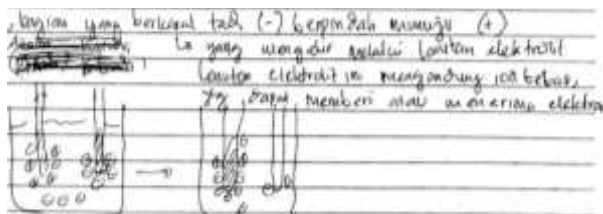 bagian yang berkarat tadi (-) berpindah menuju (+)
↳ yang mengalir melalui larutan elektrolit
Larutan elektrolit ini mengandung ion bebas,
yg dapat memberi atau menerima elektron